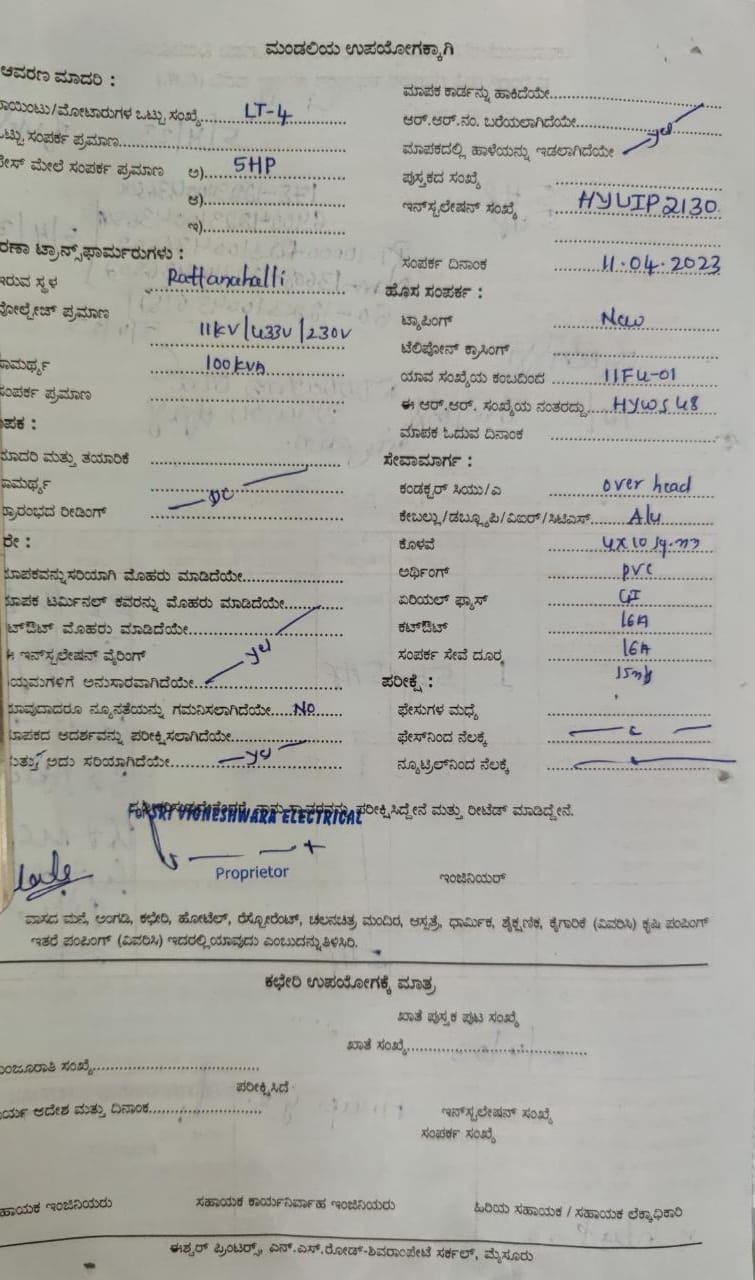 ಮಂಡಲಿಯ ಉಪಯೋಗಕ್ಕಾಗಿ
ಆವರಣ ಮಾದರಿ :
ಾಯಿಂಟು/ಮೋಟಾರುಗಳ ಒಟ್ಟು ಸಂಖ್ಯೆ LT-4
ಒಟ್ಟು ಸಂಪರ್ಕ ಪ್ರಮಾಣ
ೇಸ್ ಮೇಲೆ ಸಂಪರ್ಕ ಪ್ರಮಾಣ ಅ) 5HP
ಆ)
ಇ)
ರಣಾ ಟ್ರಾನ್ಸ್‌ಫಾರ್ಮರುಗಳು :
ಇರುವ ಸ್ಥಳ Rattanahalli
ವೋಲ್ಟೇಜ್ ಪ್ರಮಾಣ
11KV/433V/230V
ಾಮರ್ಥ್ಯ 100KVA
ಸಂಪರ್ಕ ಪ್ರಮಾಣ
ಾಪಕ :
ಮಾದರಿ ಮತ್ತು ತಯಾರಿಕೆ
ಾಮರ್ಥ್ಯ
ಪ್ರಾರಂಭದ ರೀಡಿಂಗ್ — DC —
ರೇ :
ಮಾಪಕವನ್ನು ಸರಿಯಾಗಿ ಮೊಹರು ಮಾಡಿದೆಯೇ
ಮಾಪಕ ಟರ್ಮಿನಲ್ ಕವರನ್ನು ಮೊಹರು ಮಾಡಿದೆಯೇ
ಟ್‌ಔಟ್ ಮೊಹರು ಮಾಡಿದೆಯೇ
ಈ ಇನ್‌ಸ್ಟಲೇಷನ್ ವೈರಿಂಗ್ yes
ಿಯಮಗಳಿಗೆ ಅನುಸಾರವಾಗಿದೆಯೇ
ಯಾವುದಾದರೂ ನ್ಯೂನತೆಯನ್ನು ಗಮನಿಸಲಾಗಿದೆಯೇ No
ಮಾಪಕದ ಆದರ್ಶವನ್ನು ಪರೀಕ್ಷಿಸಲಾಗಿದೆಯೇ
ಮತ್ತು ಅದು ಸರಿಯಾಗಿದೆಯೇ yes
ಮಾಪಕ ಕಾರ್ಡನ್ನು ಹಾಕಿದೆಯೇ
ಆರ್.ಆರ್.ನಂ. ಬರೆಯಲಾಗಿದೆಯೇ yes
ಮಾಪಕದಲ್ಲಿ ಹಾಳೆಯನ್ನು ಇಡಲಾಗಿದೆಯೇ
ಪುಸ್ತಕದ ಸಂಖ್ಯೆ
ಇನ್‌ಸ್ಟಲೇಷನ್ ಸಂಖ್ಯೆ HYUIP2130
ಸಂಪರ್ಕ ದಿನಾಂಕ 11.04.2023
ಹೊಸ ಸಂಪರ್ಕ :
ಟ್ಯಾಪಿಂಗ್ New
ಟೆಲಿಪೋನ್ ಕ್ರಾಸಿಂಗ್
ಯಾವ ಸಂಖ್ಯೆಯ ಕಂಬದಿಂದ 11FU-01
ಈ ಆರ್.ಆರ್. ಸಂಖ್ಯೆಯ ನಂತರದ್ದು HYWS48
ಮಾಪಕ ಓದುವ ದಿನಾಂಕ
ಸೇವಾಮಾರ್ಗ :
ಕಂಡಕ್ಟರ್ ಸಿಯು/ಎ over head
ಕೇಬಲ್ಲು/ಡಬ್ಲ್ಯೂಪಿ/ಎಐರ್/ಸಿಟಿಎಸ್ Alu
ಕೊಳವೆ 4X10 sq.mm
ಅರ್ಥಿಂಗ್ pvc
ಏರಿಯಲ್ ಫ್ಯಾಸ್ GI
ಕಟ್‌ಔಟ್ 16A
ಸಂಪರ್ಕ ಸೇವೆ ದೂರ 16A
ಪರೀಕ್ಷೆ :
ಫೇಸುಗಳ ಮಧ್ಯೆ
ಫೇಸ್‌ನಿಂದ ನೆಲಕ್ಕೆ
ನ್ಯೂಟ್ರಲ್‌ನಿಂದ ನೆಲಕ್ಕೆ
ಪರೀಕ್ಷಿಸಿದ್ದೇನೆ ಮತ್ತು ರೀಟೆಡ್ ಮಾಡಿದ್ದೇನೆ.
For SRI VIGNESHWARA ELECTRICAL
Proprietor
ಇಂಜಿನಿಯರ್
ವಾಸದ ಮನೆ, ಅಂಗಡಿ, ಕಛೇರಿ, ಹೋಟೆಲ್, ರೆಸ್ಟೋರೆಂಟ್, ಚಲನಚಿತ್ರ ಮಂದಿರ, ಆಸ್ಪತ್ರೆ, ಧಾರ್ಮಿಕ, ಶೈಕ್ಷಣಿಕ, ಕೈಗಾರಿಕೆ (ವಿವರಿಸಿ) ಕೃಷಿ ಪಂಪಿಂಗ್
ಇತರೆ ಪಂಪಿಂಗ್ (ವಿವರಿಸಿ) ಇದರಲ್ಲಿ ಯಾವುದು ಎಂಬುದನ್ನು ತಿಳಿಸಿರಿ.
ಕಛೇರಿ ಉಪಯೋಗಕ್ಕೆ ಮಾತ್ರ
ಖಾತೆ ಪುಸ್ತಕ ಪುಟ ಸಂಖ್ಯೆ
ಖಾತೆ ಸಂಖ್ಯೆ
ಮಂಜೂರಾತಿ ಸಂಖ್ಯೆ
ಪರೀಕ್ಷಿಸಿದೆ
ಾರ್ಯ ಆದೇಶ ಮತ್ತು ದಿನಾಂಕ
ಇನ್‌ಸ್ಟಲೇಷನ್ ಸಂಖ್ಯೆ
ಸಂಪರ್ಕ ಸಂಖ್ಯೆ
ಹಾಯಕ ಇಂಜಿನಿಯರು ಸಹಾಯಕ ಕಾರ್ಯನಿರ್ವಾಹ ಇಂಜಿನಿಯರು ಹಿರಿಯ ಸಹಾಯಕ / ಸಹಾಯಕ ಲೆಕ್ಕಾಧಿಕಾರಿ
ಈಶ್ವರ್ ಪ್ರಿಂಟರ್ಸ್, ಎನ್.ಎಸ್.ರೋಡ್-ಶಿವರಾಂಪೇಟೆ ಸರ್ಕಲ್, ಮೈಸೂರು